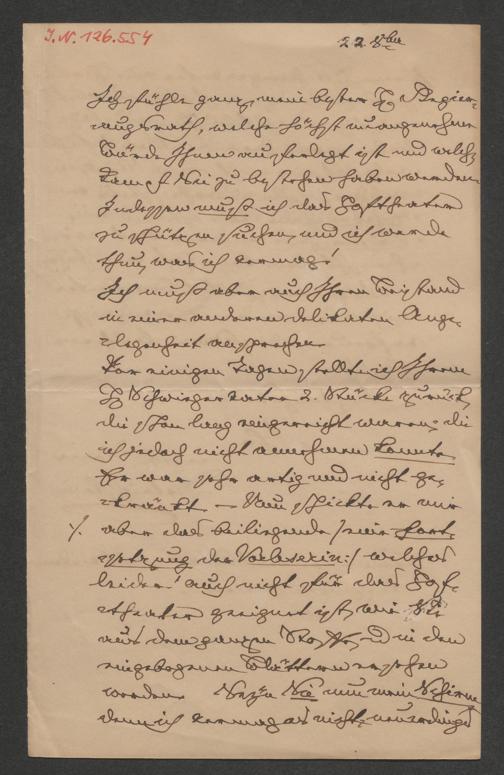 I.N. 126.554
22 8ber
Ich fühle ganz, mein bester H Regier-
ungsrath, welche höchst unangenehme
Bürde Ihnen auferlegt ist und welch
Kampf Sie zu bestehen haben werden.
Indessen muß ich das Hoftheater
zu schützen suchen, und ich werde
thun, was ich vermag!
Ich muß aber auch Ihren Beistand
in einer anderen delikaten Ange-
legenheit ansprechen.
Vor einigen Tagen stellte ich Ihrem
H Schwiegervater 2. Stücke zurück,
die schon lang eingereicht waren, die
ich jedoch nicht annehmen konnte.
Er war sehr artig und nicht ge-
kränkt – Nun schickte er mir
%. aber das beiliegende /: eine Fort-
setzung der Vorleserin :/ welches
leider! auch nicht für das Hof-
theater geeignet ist, wie Sie
aus dem ganzen Stoffe, u in den
eingebogenen Blättern ersehen
werden. Seyn Sie nun mein Schirm,
denn ich vermag es nicht, neuerdings